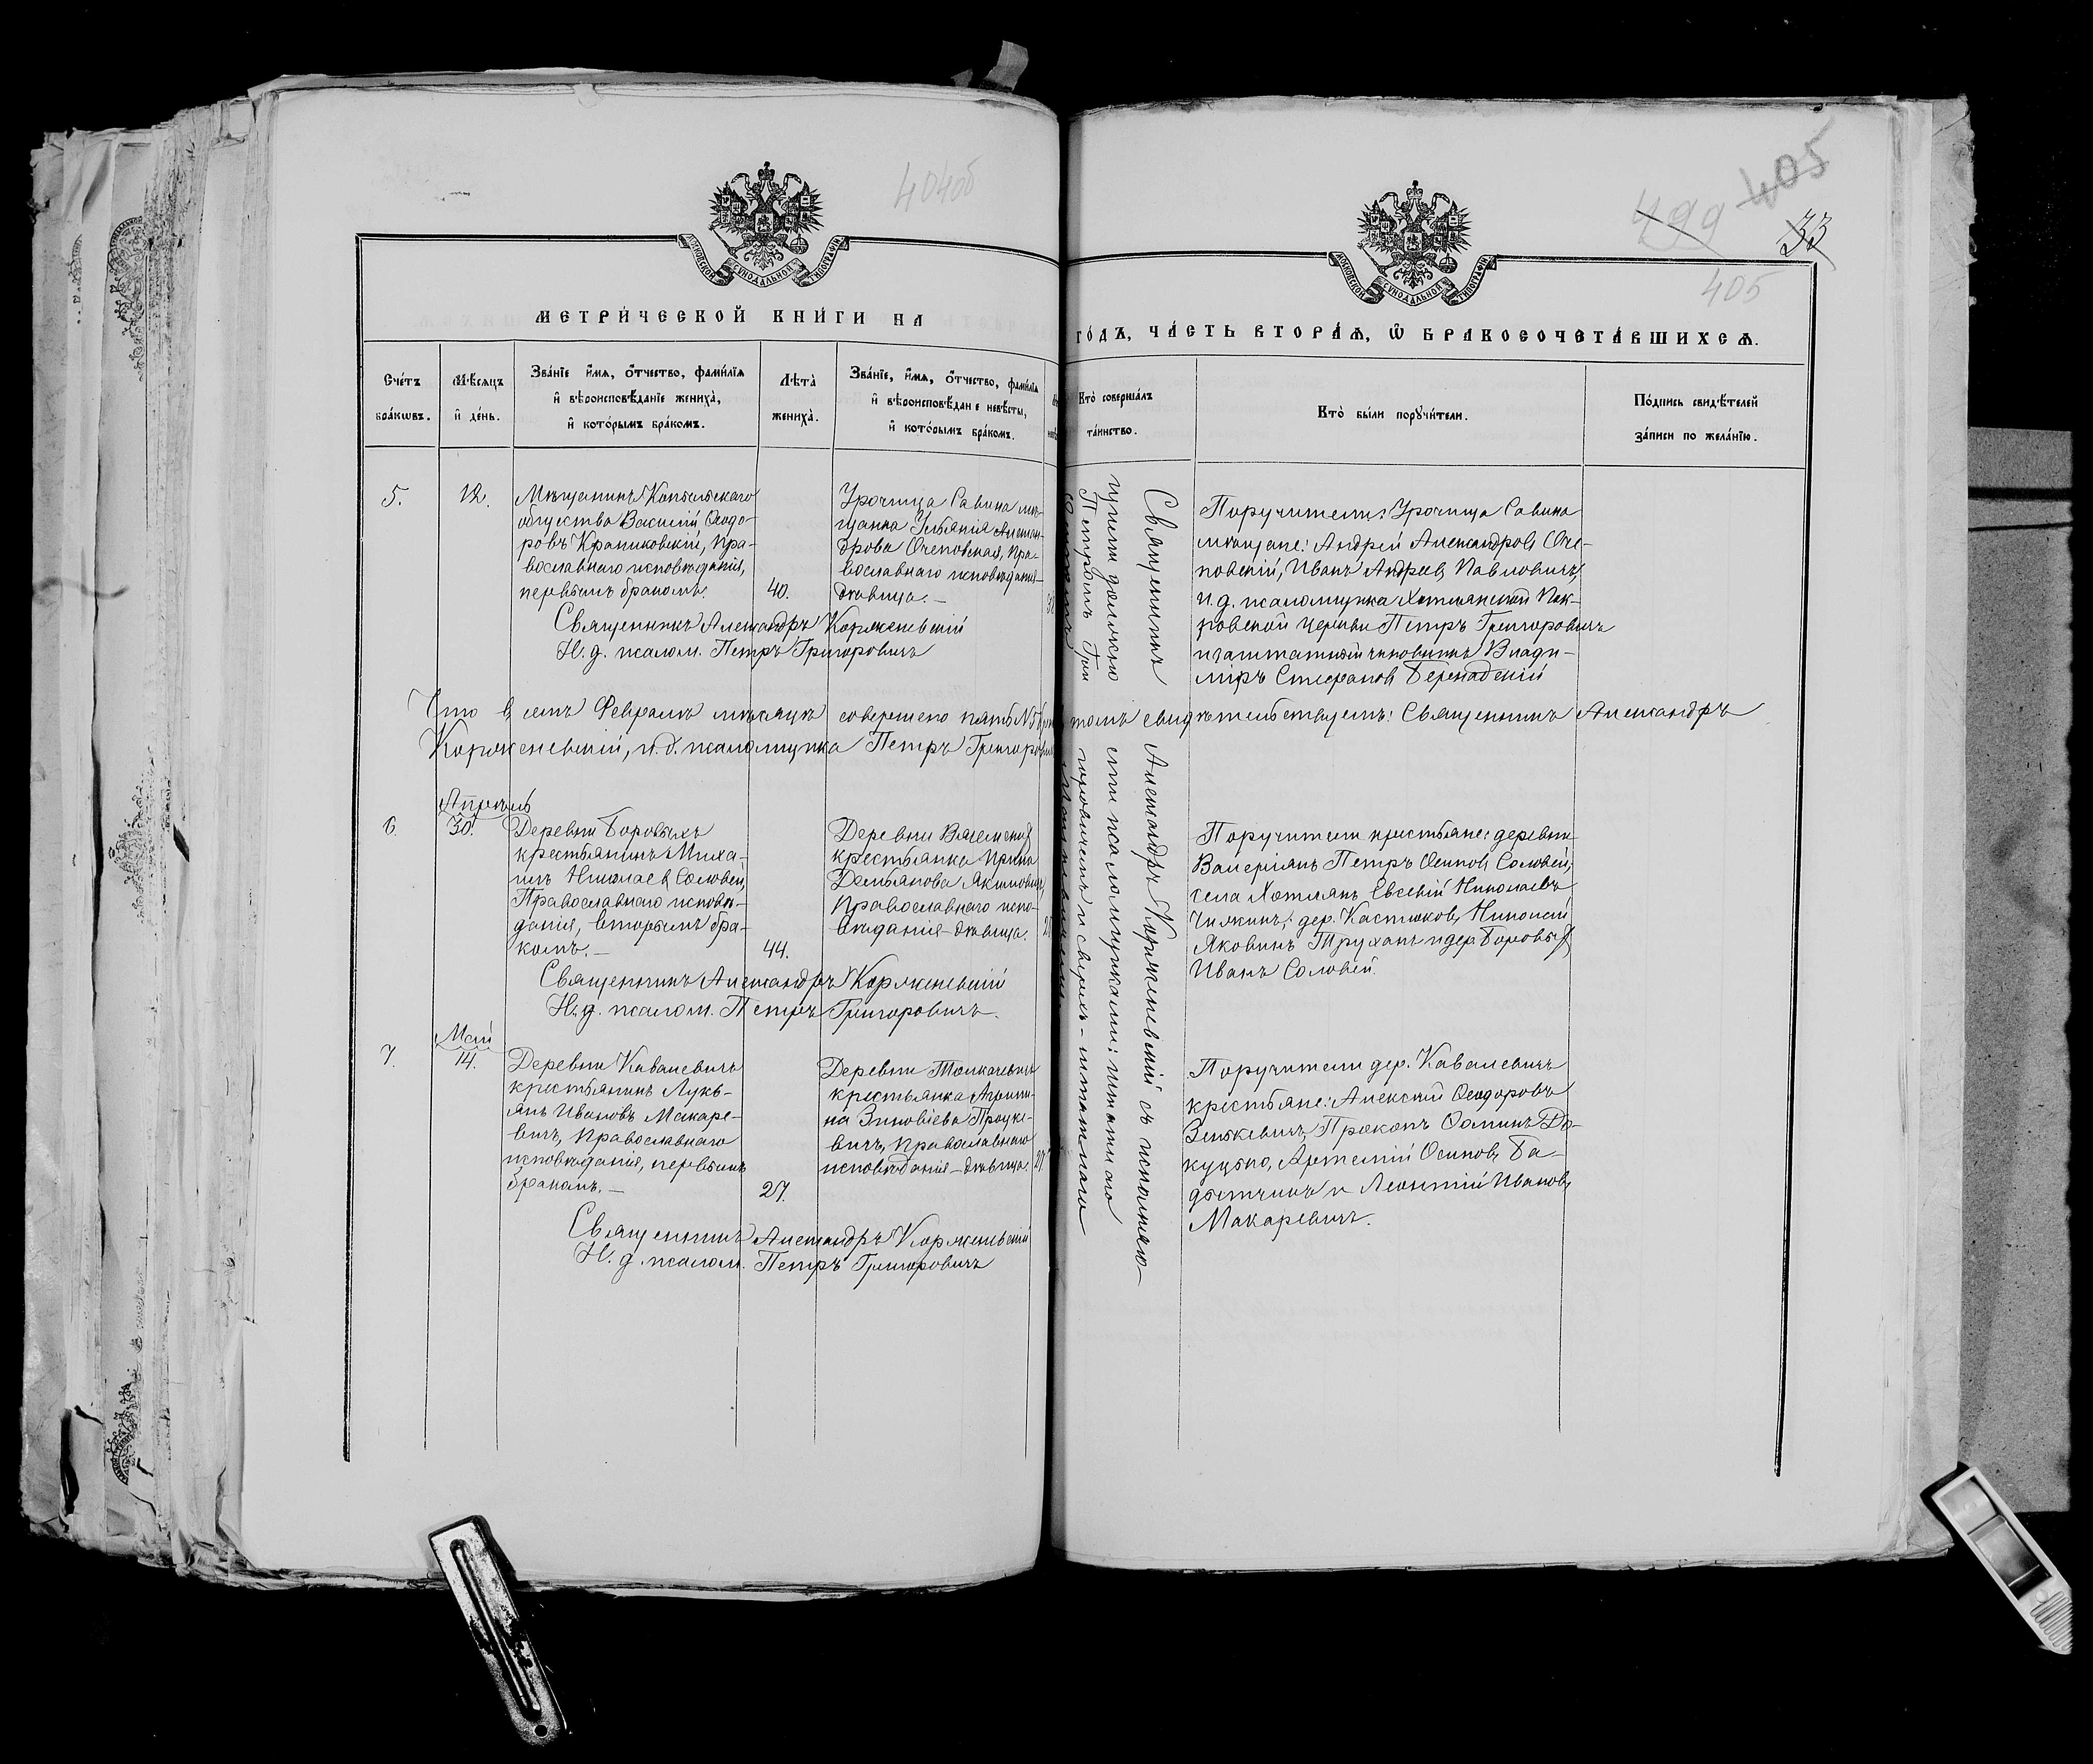 404об
МОСКОВСКОЙ СѴНОДАЛЬНОЙ ТИПОГРАФІИ
МЕТРИ́ЧЕСКОЙ КНИ́ГИ НА
Сче́тъ бра́кѡвъ.
Мѣ́сяцъ и҆ де́нь.
Зва́нїе и҆́мѧ, ѻ҆́тчество, фамѝлїѧ
и҆ вѣроисповѣ́данїе жениха̀,
и҆ кото́рымъ бра́комъ.
Лѣта̀ жениха̀.
Зва́нїе, и҆́мѧ, ѻ҆́тчество, фамѝлїѧ
и҆ вѣроисповѣ́дан е невѣ́сты,
и҆ кото́рымъ бра́комъ.
5.
12.
Мѣщанинъ Копыльскаго
общества Василій Ѳеодо-
ровъ Крапиковскій, Пра-
вославнаго исповѣданія,
первымъ бракомъ.
40.
Урочища Савина мѣ-
щанка Ульянія Алексан-
дрова Очеповская, Пра-
вославнаго исповѣданія-
дѣвица.-
Священникъ Александръ Корженевскій
И. д. псалом. Петръ Григоровичъ
Что въ семъ Февралѣ мѣсяцѣ совершено пять №5
Корженевскій, и.д. псаломщика Петръ Григоровичъ
6.
Апрѣль
30.
Деревни Боровыхъ
крестьянинъ Миха-
илъ Николаевъ Соловей,
Православнаго исповѣ-
данія, вторымъ бра-
комъ.-
44.
Деревни
крестьянка Ирина
Демьянова Якимовичъ,
Православнаго испо-
вѣданія-дѣвица.
Священникъ Александръ Корженевскій
И. д. псалом. Петръ Григоровичъ.
7.
Май
14.
Деревни Кавалевичъ
крестьянинъ Лукь-
янъ Ивановъ Макаре-
вичъ, Православнаго
исповѣданія, первымъ
бракомъ.-
27.
Деревни Толкачевичъ
крестьянка Агрипи-
на Зиновіева Процке-
вичъ, Православнаго
исповѣданія-дѣвица.
Священникъ Александръ Корженевскій
И. д. псалом. Петръ Григоровичъ
499 405
33
405
МОСКОВСКОЙ СѴНОДАЛЬНОЙ ТИПОГРАФІИ
ГО́ДЪ, ЧА́СТЬ ВТОРА́Ѧ, Ѽ БРАКОСОЧЕТА́ВШИХСѦ.
Кто̀ соверша́лъ та́инство.
Кто̀ бы́ли порꙋчи́тели.
По́дпись свидѣ́телей
за́писи по жела́нїю.
Священникъ Александръ Корженевскій съ исполняю-
щими должность псаломщиками: штатнаго
Петромъ Григоровичемъ и сверхъ-штатнаго
Поручители: Урочища Савина
мѣщане: Андрей Александровъ Оче-
повскій, Иванъ Андреевъ Павловичъ,
и. д. псаломщика Хотлянской Пок-
ровской церкви Петръ Григоровичъ
и заштатный чиновникъ Влади-
міръ Стефановъ Бернадскій
томъ свидѣтельствуемъ: Священникъ Александръ
Поручители крестьяне: деревни
Валеріянъ Петръ Осиповъ Соловей,
села Хотлянъ Евсевій Николаевъ
Чижикъ, дер. Кастюковъ, Николай
Яковинъ Труханъ и дер. Боровыхъ
Иванъ Соловей.
Поручители дер. Кавалевичъ
крестьяне: Алексѣй Ѳеодоровъ
Зенькевичъ, Прокопъ Ѳоминъ До-
куцько, Артемій Осиповъ Ба-
дытчикъ и Леонтій Ивановъ
Макаревичъ.